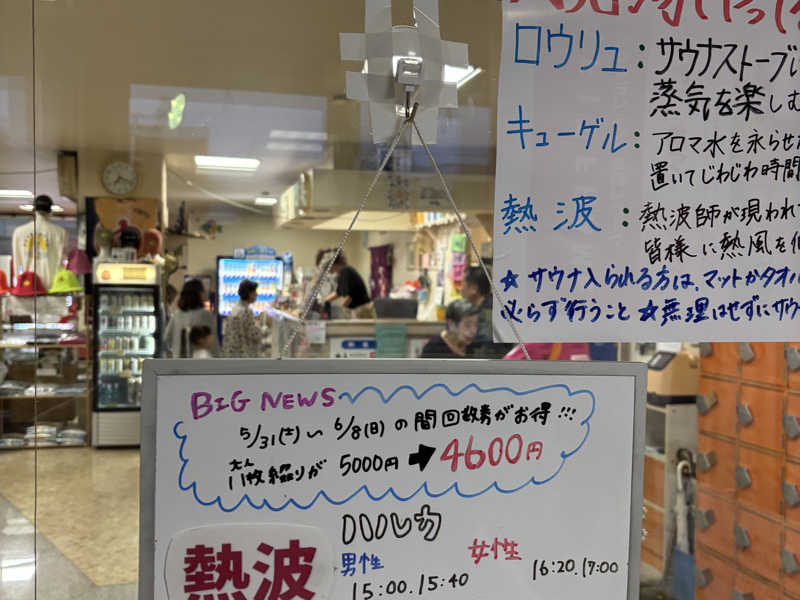 ロウリュ:サウナストーブに
蒸気を楽しむ
キューゲル:アロマ水を氷らせ
置いてじわじわ時間
熱波:熱波師が現われて
皆様に熱風を
★サウナ入られる方は、マットかタオル
必らず行うこと ★無理はせずにサウ
BIG NEWS
5/31(土)〜6/8(日)の間回数券がお得!!!
大人
11枚綴りが 5000円→4600円
ハルカ
熱波
男性
15:00.15:40
女性
16:20.17:00